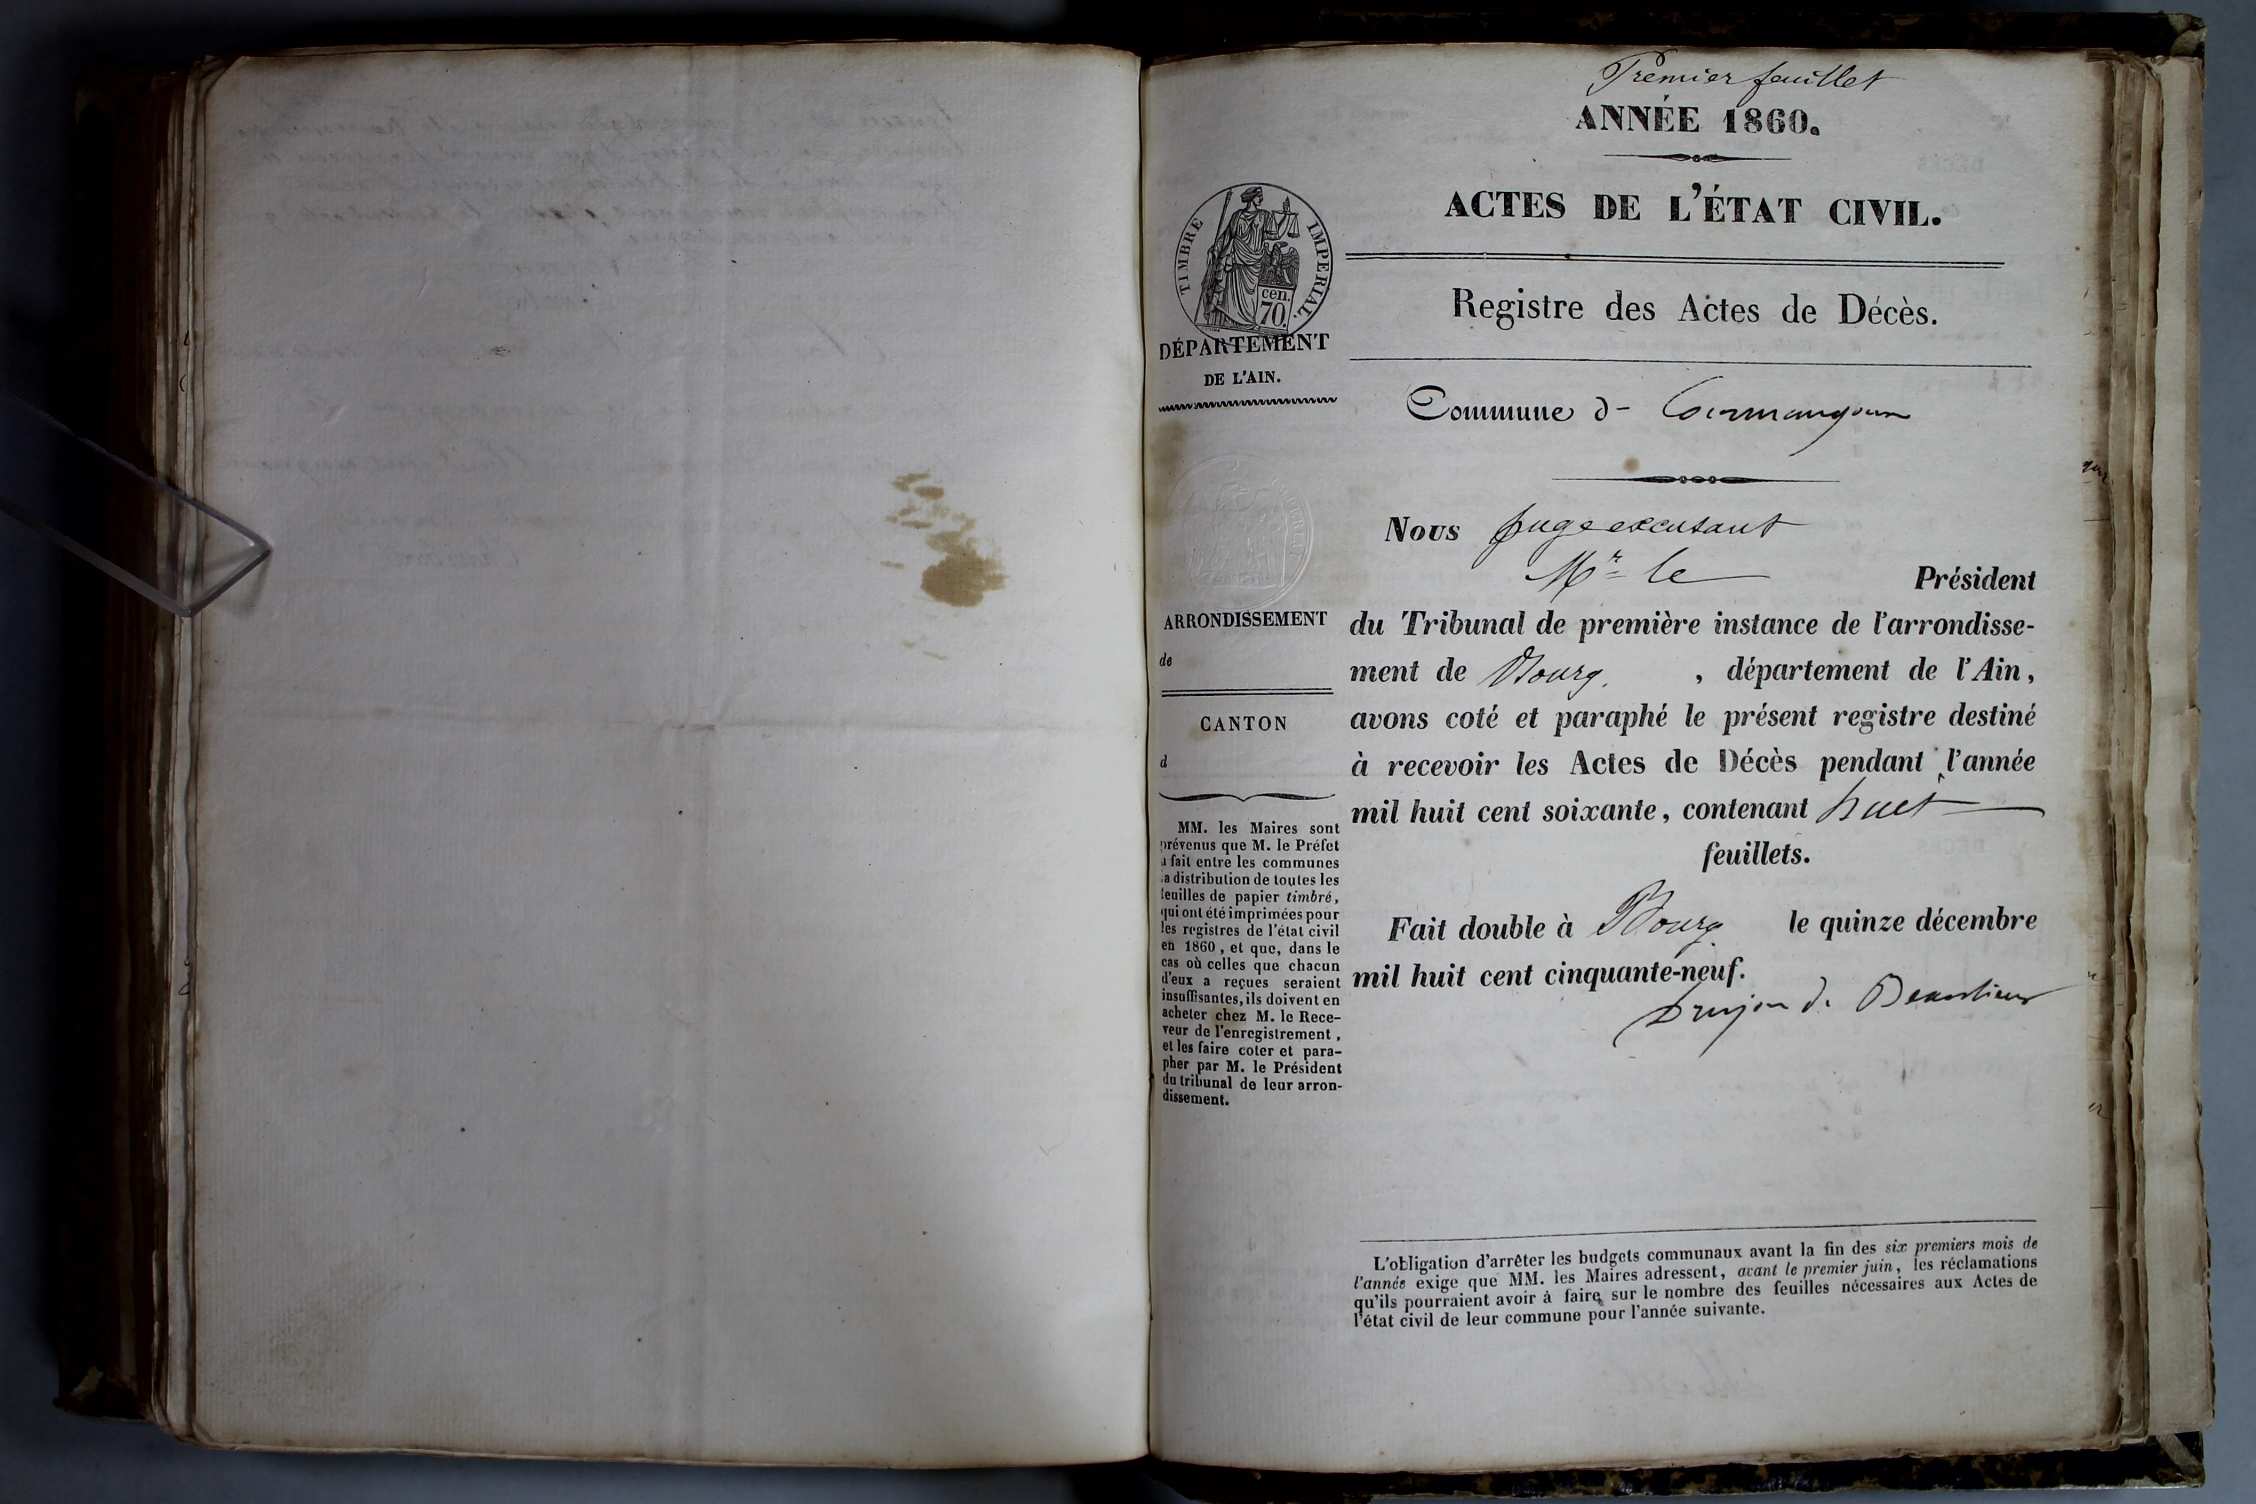 Premier feuillet
ANNÉE 1860.
ACTES DE L'ÉTAT CIVIL.
Registre des Actes de Décès.
TIMBRE IMPERIAL.
cen.
70.
DÉPARTEMENT
DE L'AIN.
Commune d- Cormangoux
ARRONDISSEMENT
de
CANTON
d
MM. les Maires sont
prévenus que M. le Préfet
a fait entre les communes
la distribution de toutes les
feuilles de papier timbré,
qui ont été imprimées pour
les registres de l'état civil
en 1860, et que, dans le
cas où celles que chacun
d'eux a reçues seraient
insuffisantes, ils doivent en
acheter chez M. le Rece-
veur de l'enregistrement,
et les faire coter et para-
pher par M. le Président
du tribunal de leur arron-
dissement.
Nous Juge excusant
Mr le Président
du Tribunal de première instance de l'arrondisse-
ment de Bourg, département de l'Ain,
avons coté et paraphé le présent registre destiné
à recevoir les Actes de Décès pendant l'année
mil huit cent soixante, contenant huit
feuillets.
Fait double à Bourg le quinze décembre
mil huit cent cinquante-neuf.
Drujon de Beaulieu
L'obligation d'arrêter les budgets communaux avant la fin des six premiers mois de
l'année exige que MM. les Maires adressent, avant le premier juin, les réclamations
qu'ils pourraient avoir à faire sur le nombre des feuilles nécessaires aux Actes de
l'état civil de leur commune pour l'année suivante.